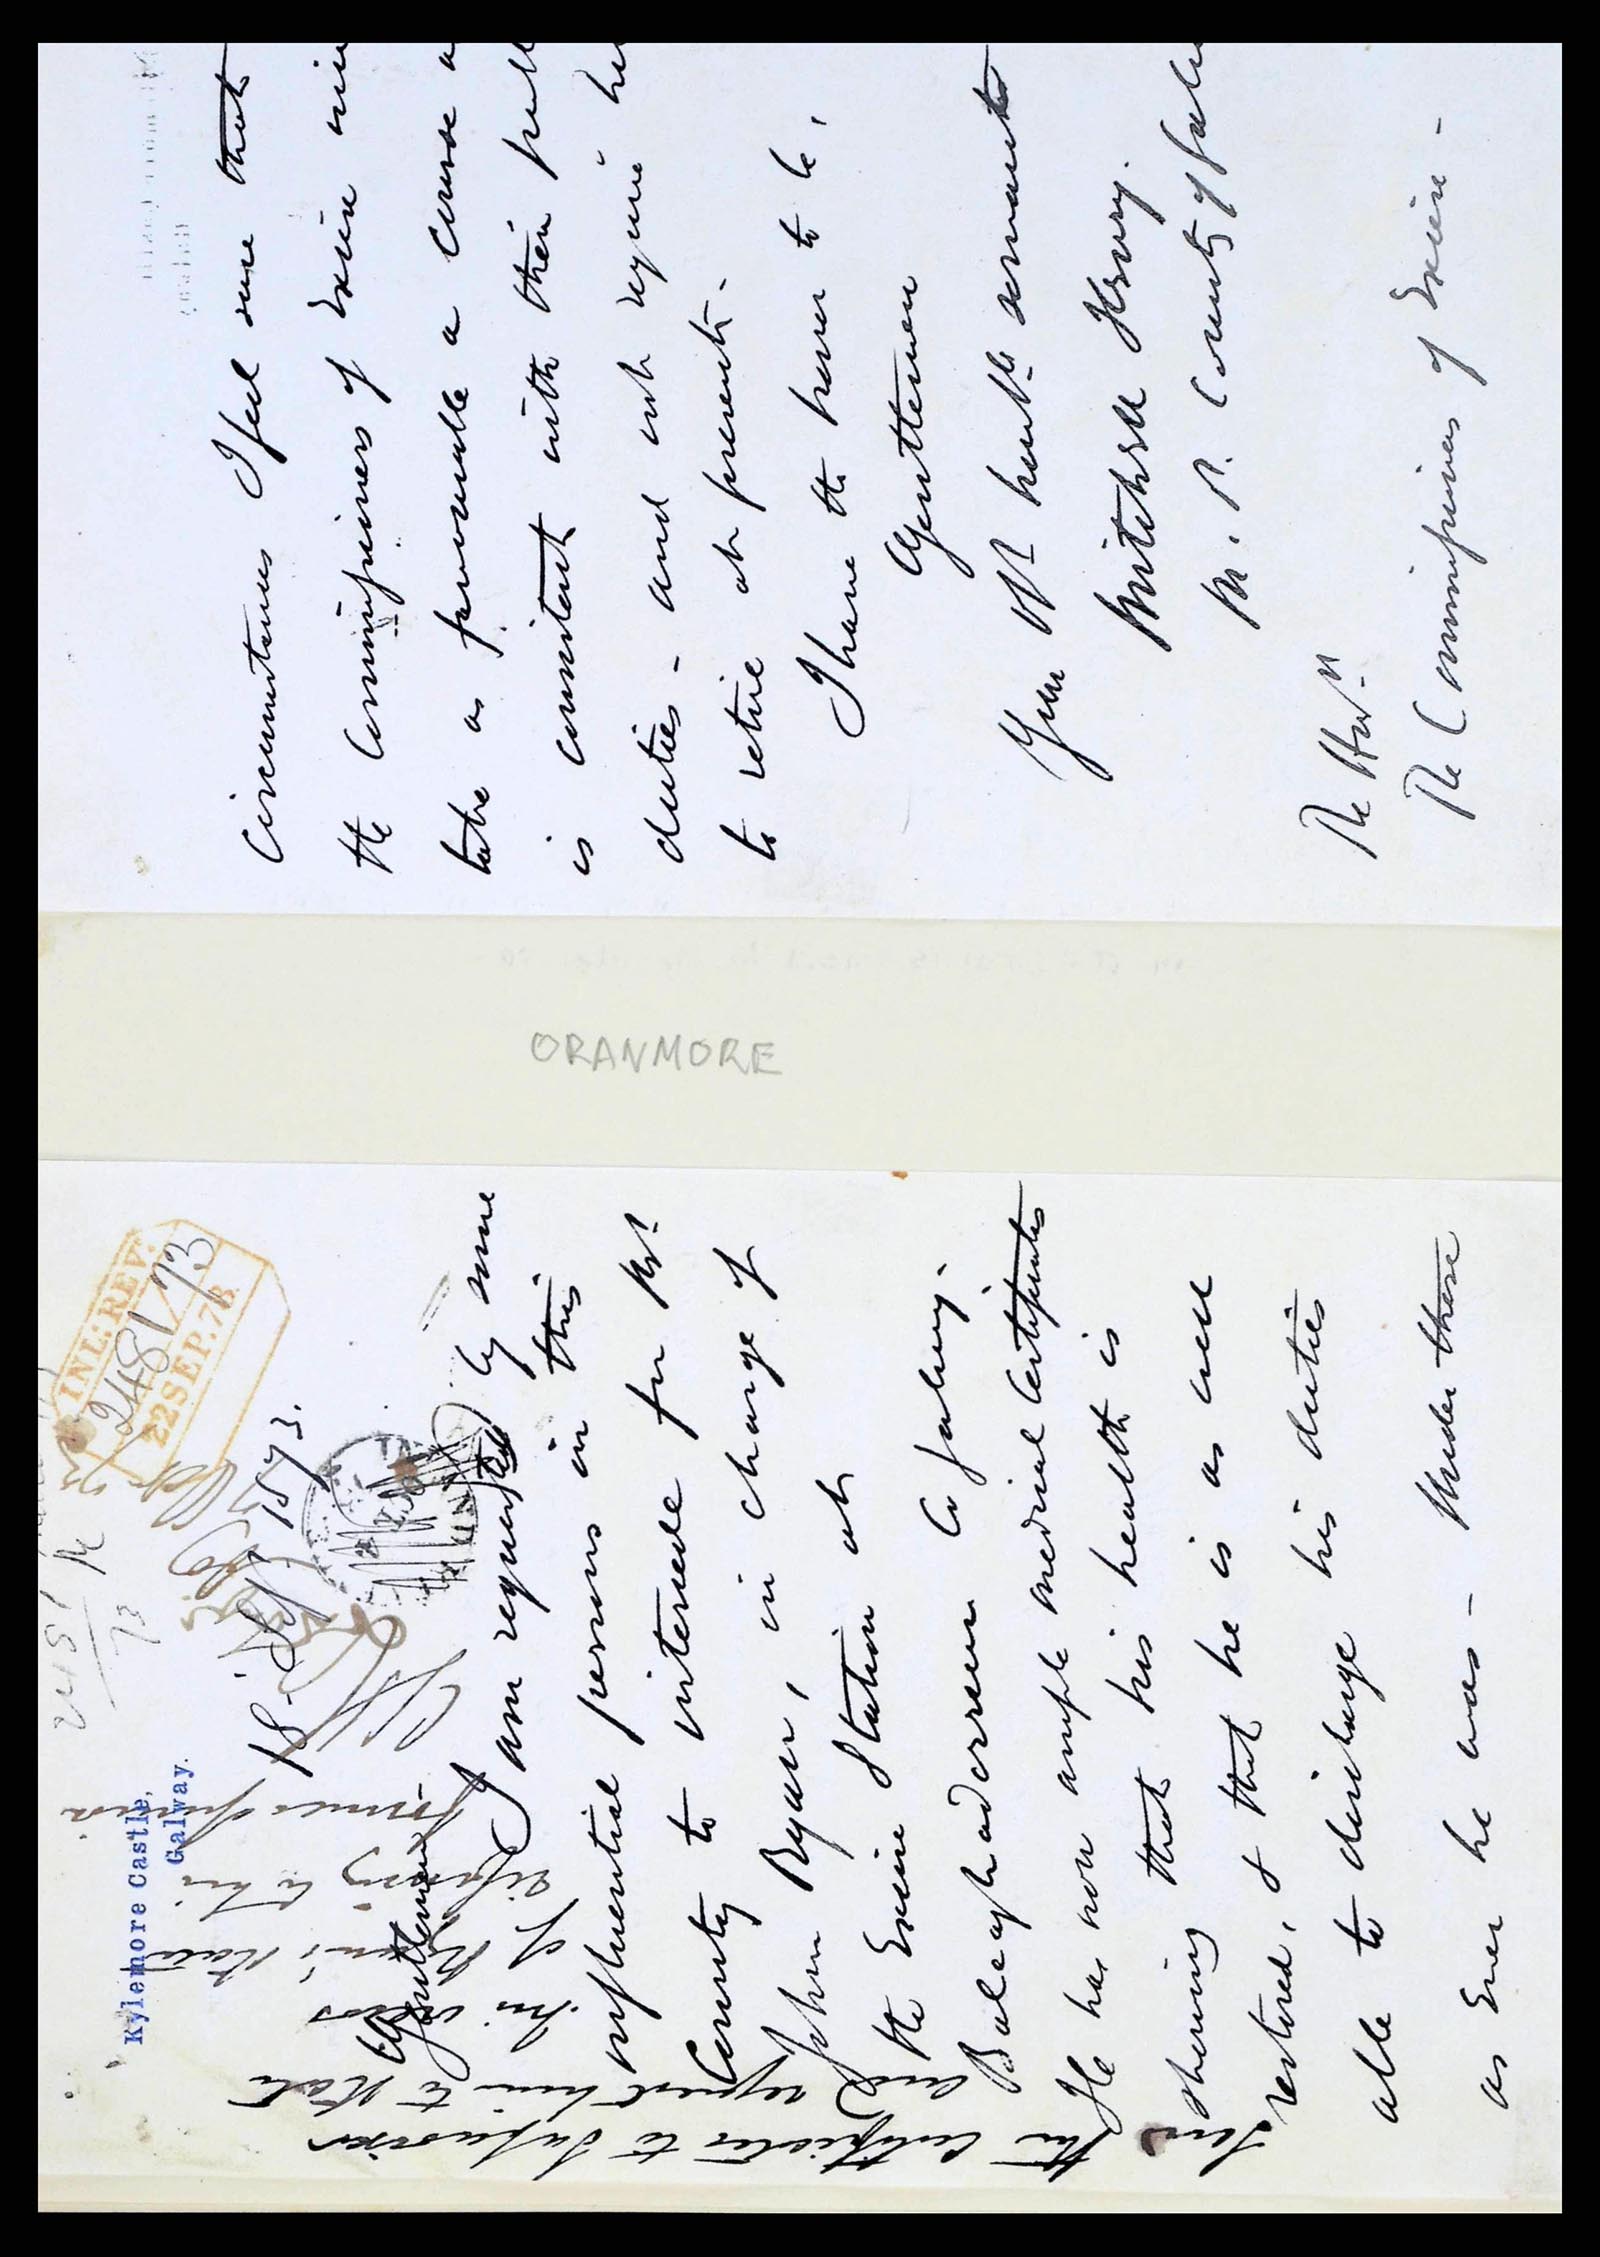 Kylemore Castle,
Galway.
18. Sept 1873.
INL: REV:
2481/73
22 SEP. 73
2481
73
Gentlemen
I am requested by some
influential persons in this
County to intercede for Mr
John Ryan, in charge of
the Excise Station at
Co Galway.
He has now ample medical Certificates
shewing that his health is
restored, & that he is as well
able to discharge his duties
as Ever he was - Under these
Send the Certificates to Supervisor
and request him to State
his views
of Ryan's State
ORANMORE
Circumstances I feel sure that
the Commissioners of Excise will
take as favourable a Course as
is consistent with their public
duties - and not require him
to retire at present -
I have the honor to be,
Gentlemen
Your Obt humble servant
Mitchell Henry.
M. P. County Galway
The Honble
The Commissioners of Excise -